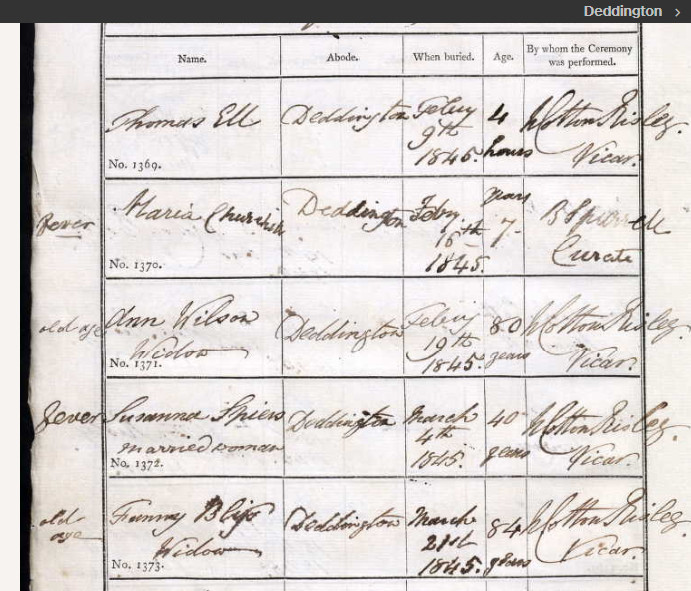 Deddington
Name. Abode. When buried. Age. By whom the Ceremony
was performed.
Thomas Ell Deddington Feby 4 W Cotton Risley.
9th
No. 1369. 1845. hours Vicar.
Fever Maria Deddington Feby years 7 B Spurrell
16th
No. 1370. 1845. Curate
old age Ann Wilson Deddington Feby 80 W Cotton Risley.
19th
Widow
No. 1371. 1845. years Vicar.
fever Susanna Spiers Deddington March 40 W Cotton Risley.
4th
married woman
No. 1372. 1845. years Vicar.
old Fanny Deddington March 84 W Cotton Risley
age
Widow 21st
No. 1373. 1845. years Vicar.